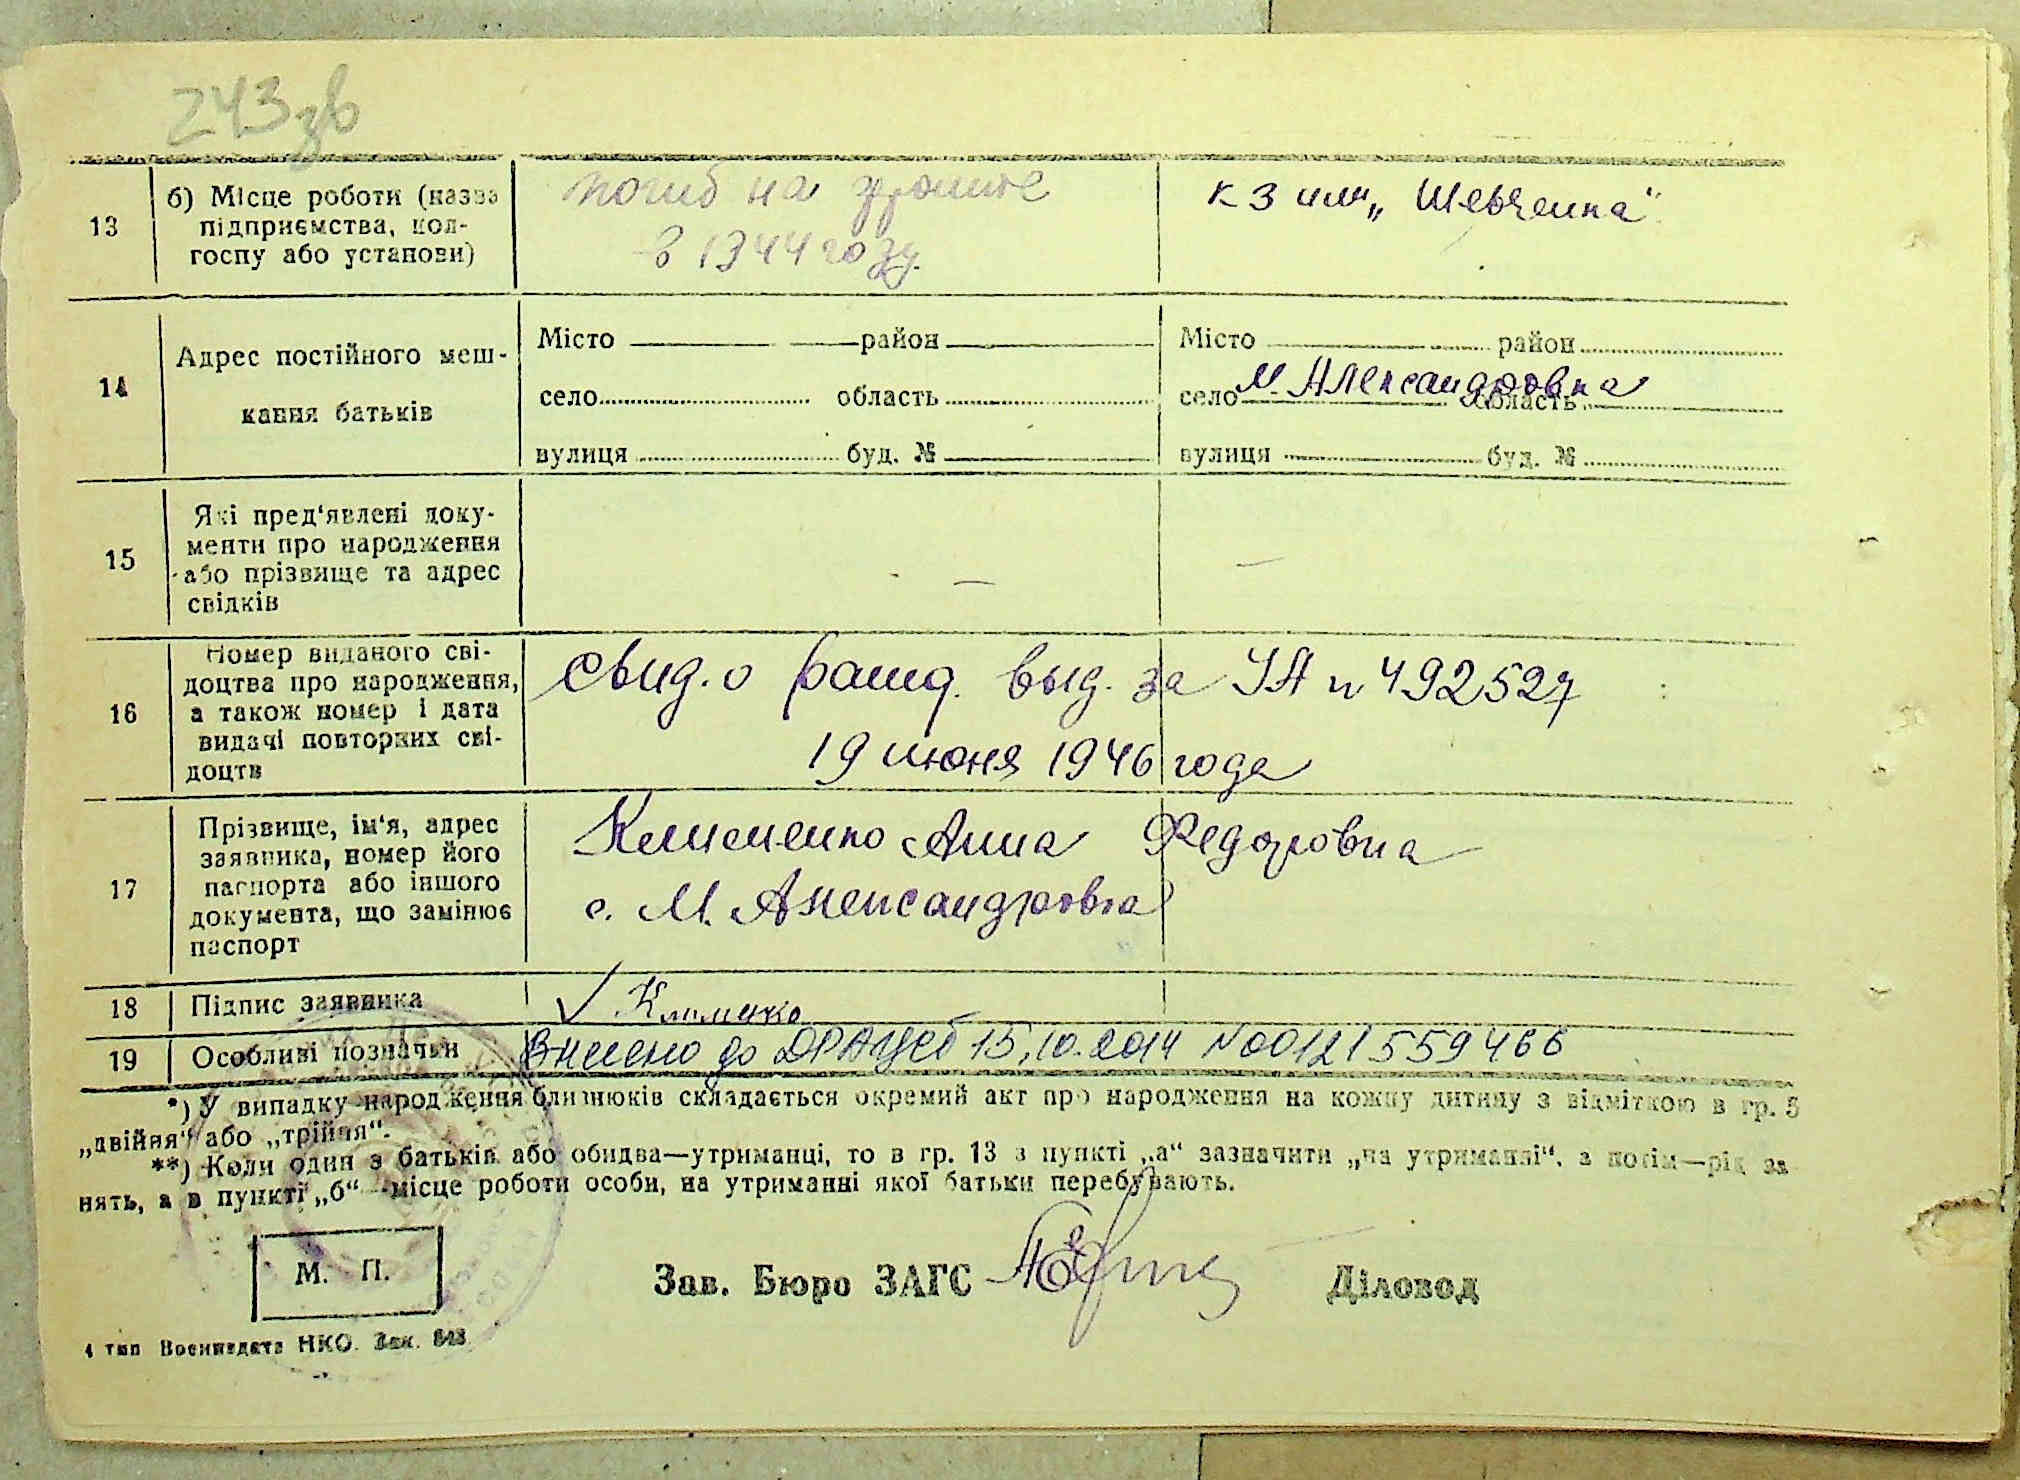 243зв
13
б) Місце роботи (назва підприємства, кол-
госпу або установи)
погиб на фронте
в 1944 году
к з им „Шевченка“
14
Адрес постійного меш-
кання батьків
Місто район
село область
вулиця буд. №
Місто район
село М. Александровка область
вулиця буд. №
15
Які пред‘явлені доку-
менти про народження
або прізвище та адрес
свідків
—
—
16
Номер виданого сві-
доцтва про народження,
а також номер і дата
видачі повторних сві-
доцтв
Свид. о рожд. выд. за УА № 492527
19 июня 1946 года
17
Прізвище, ім‘я, адрес
заявника, номер його
паспорта або іншого
документа, що замінює
паспорт
Клименко Анна Федоровна
с. М. Александровка
18
Підпис заявника
Клименко
19
Особливі позначки
Внесено до ДРАЦСГ 15.10.2014 №00121559466
*) У випадку народження близнюків складається окремий акт про народження на кожну дитину з відміткою в гр. 5
„двійня“ або „трійня“.
**) Коли один з батьків або обидва—утриманці, то в гр. 13 в пункті „а“ зазначити „на утриманні“, а потім—рід за
нять, а в пункті „б“—місце роботи особи, на утриманні якої батьки перебувають.
М. П.
Зав. Бюро ЗАГС
Діловод
4 тип Воениздата НКО. Зак. 843